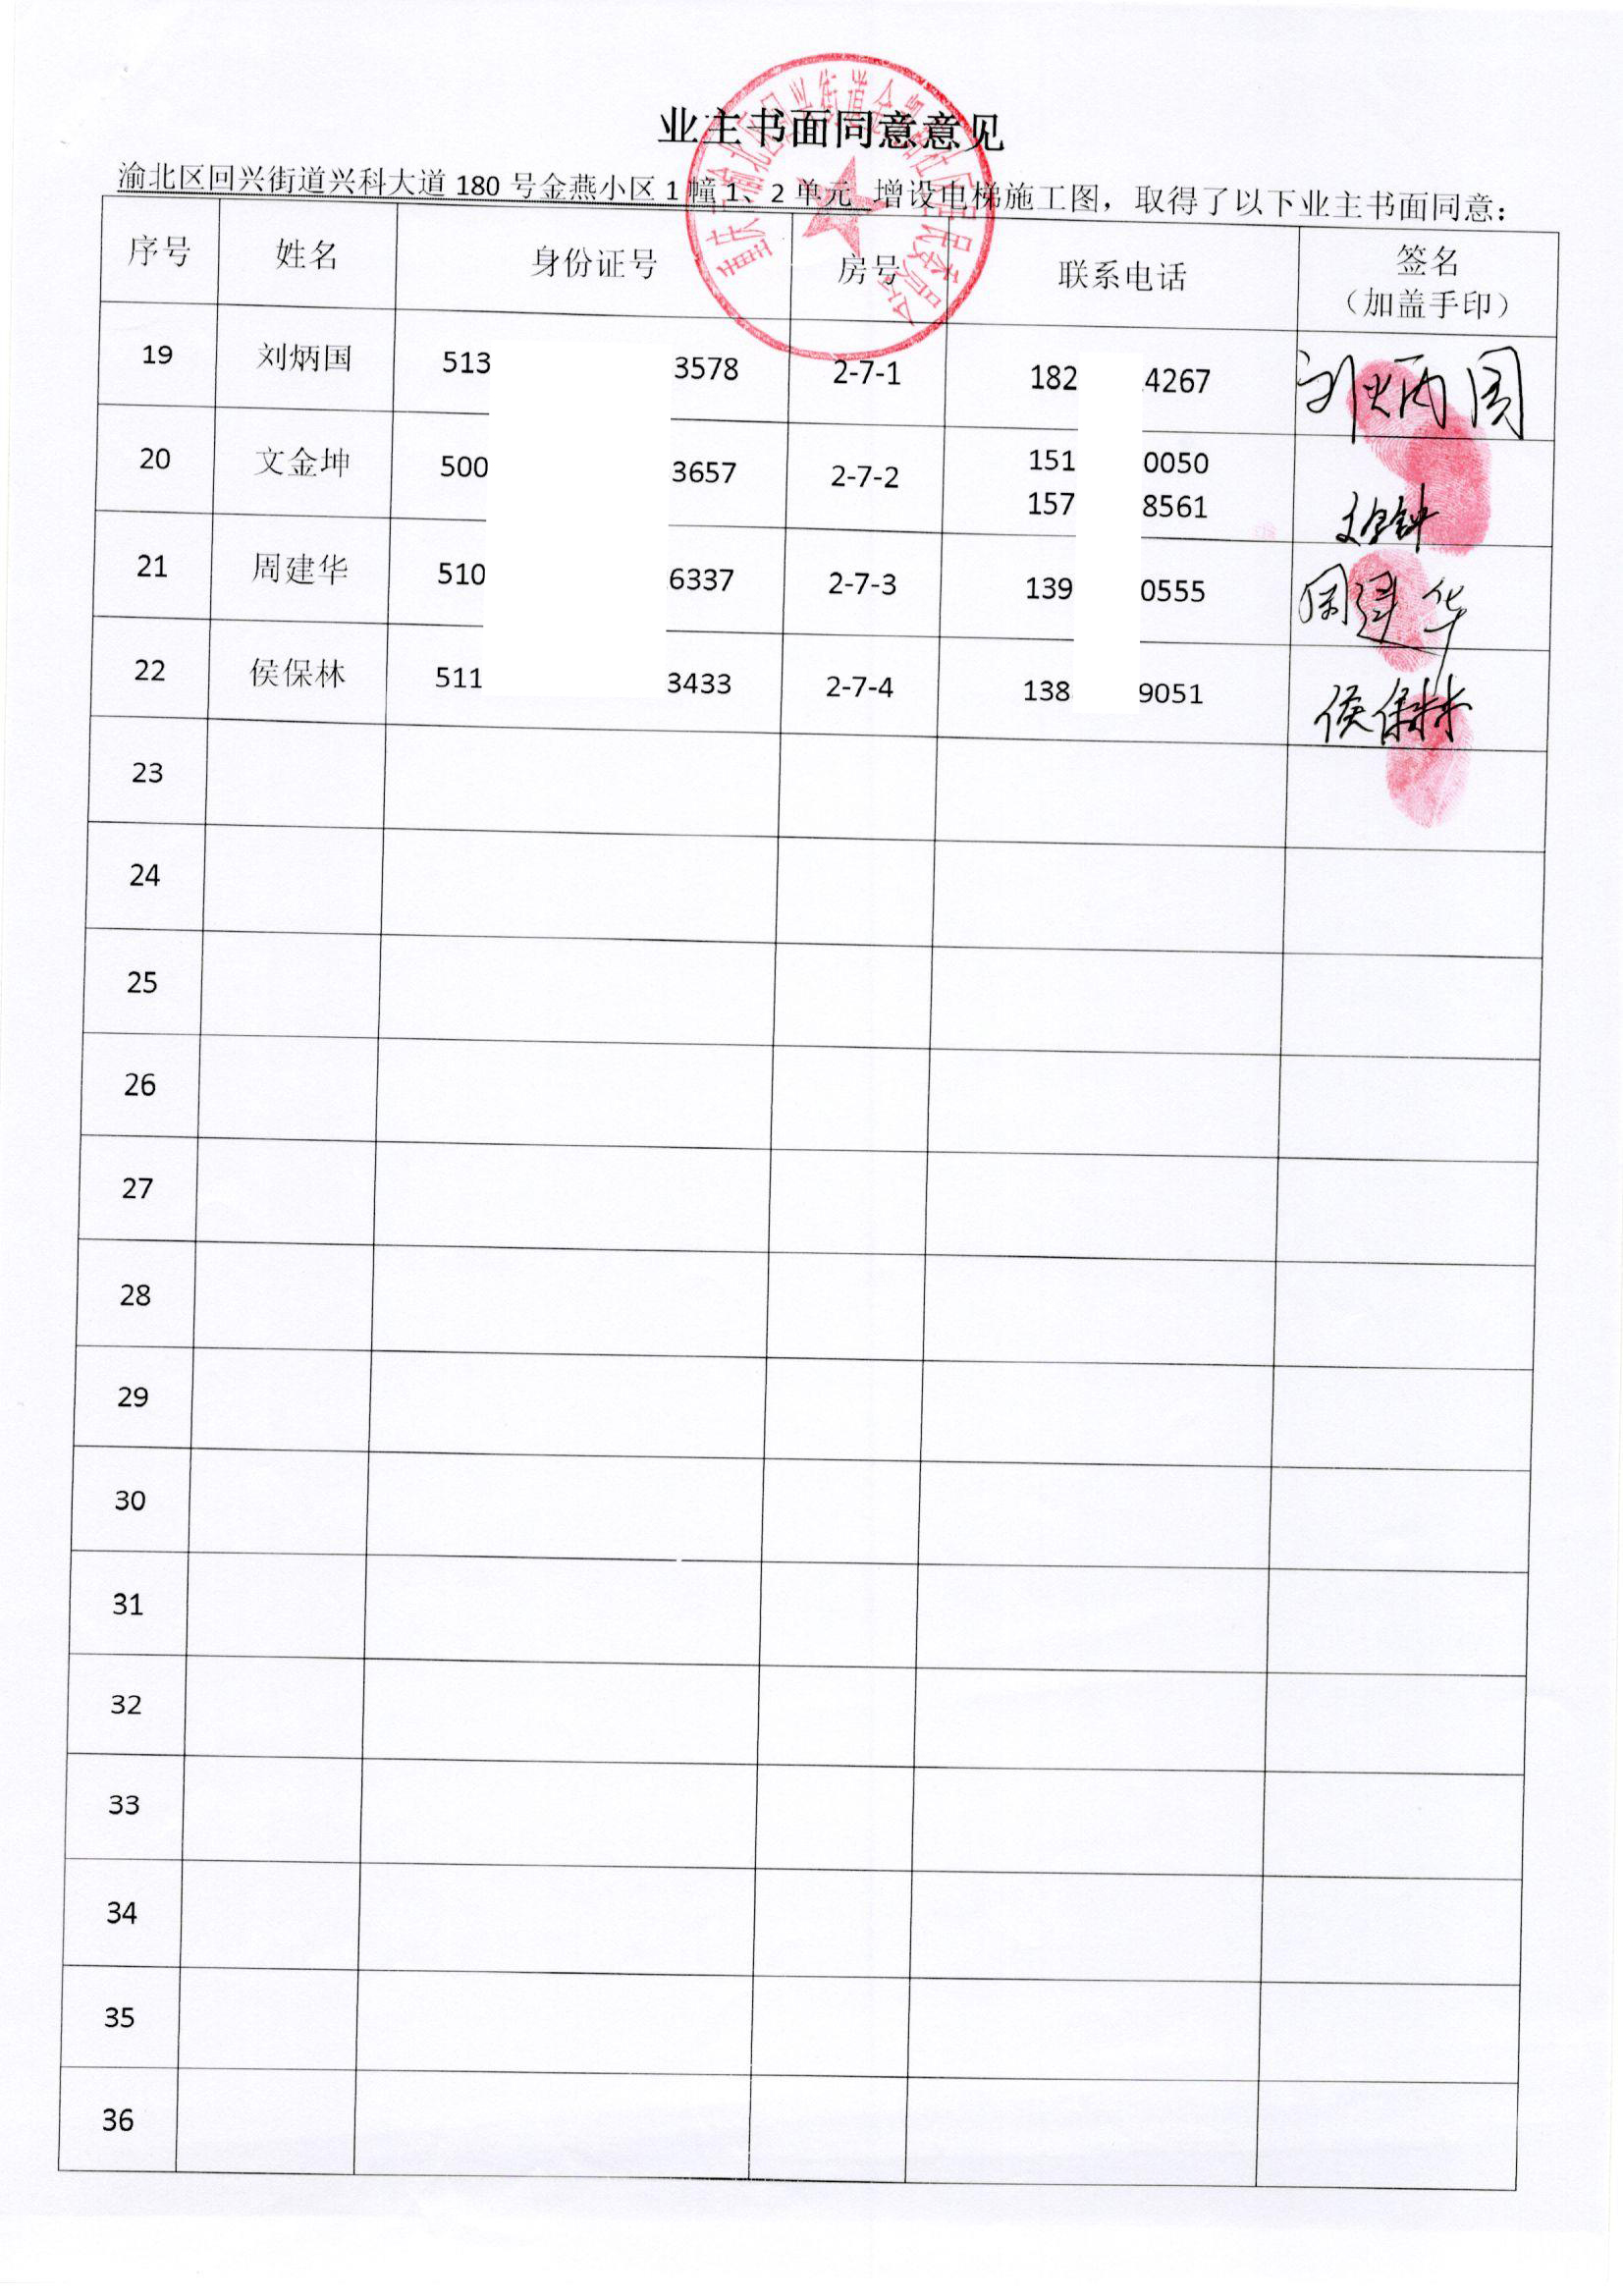 业主书面同意意见
渝北区回兴街道兴科大道 180 号金燕小区 1 幢 1、2 单元 增设电梯施工图，取得了以下业主书面同意：
序号 姓名 身份证号 房号 联系电话 签名
（加盖手印）
19 刘炳国 513 3578 2-7-1 182 4267 刘炳国
20 文金坤 500 3657 2-7-2 151 0050
157 8561
21 周建华 510 6337 2-7-3 139 0555 周建华
22 侯保林 511 3433 2-7-4 138 9051 侯保林
23
24
25
26
27
28
29
30
31
32
33
34
35
36